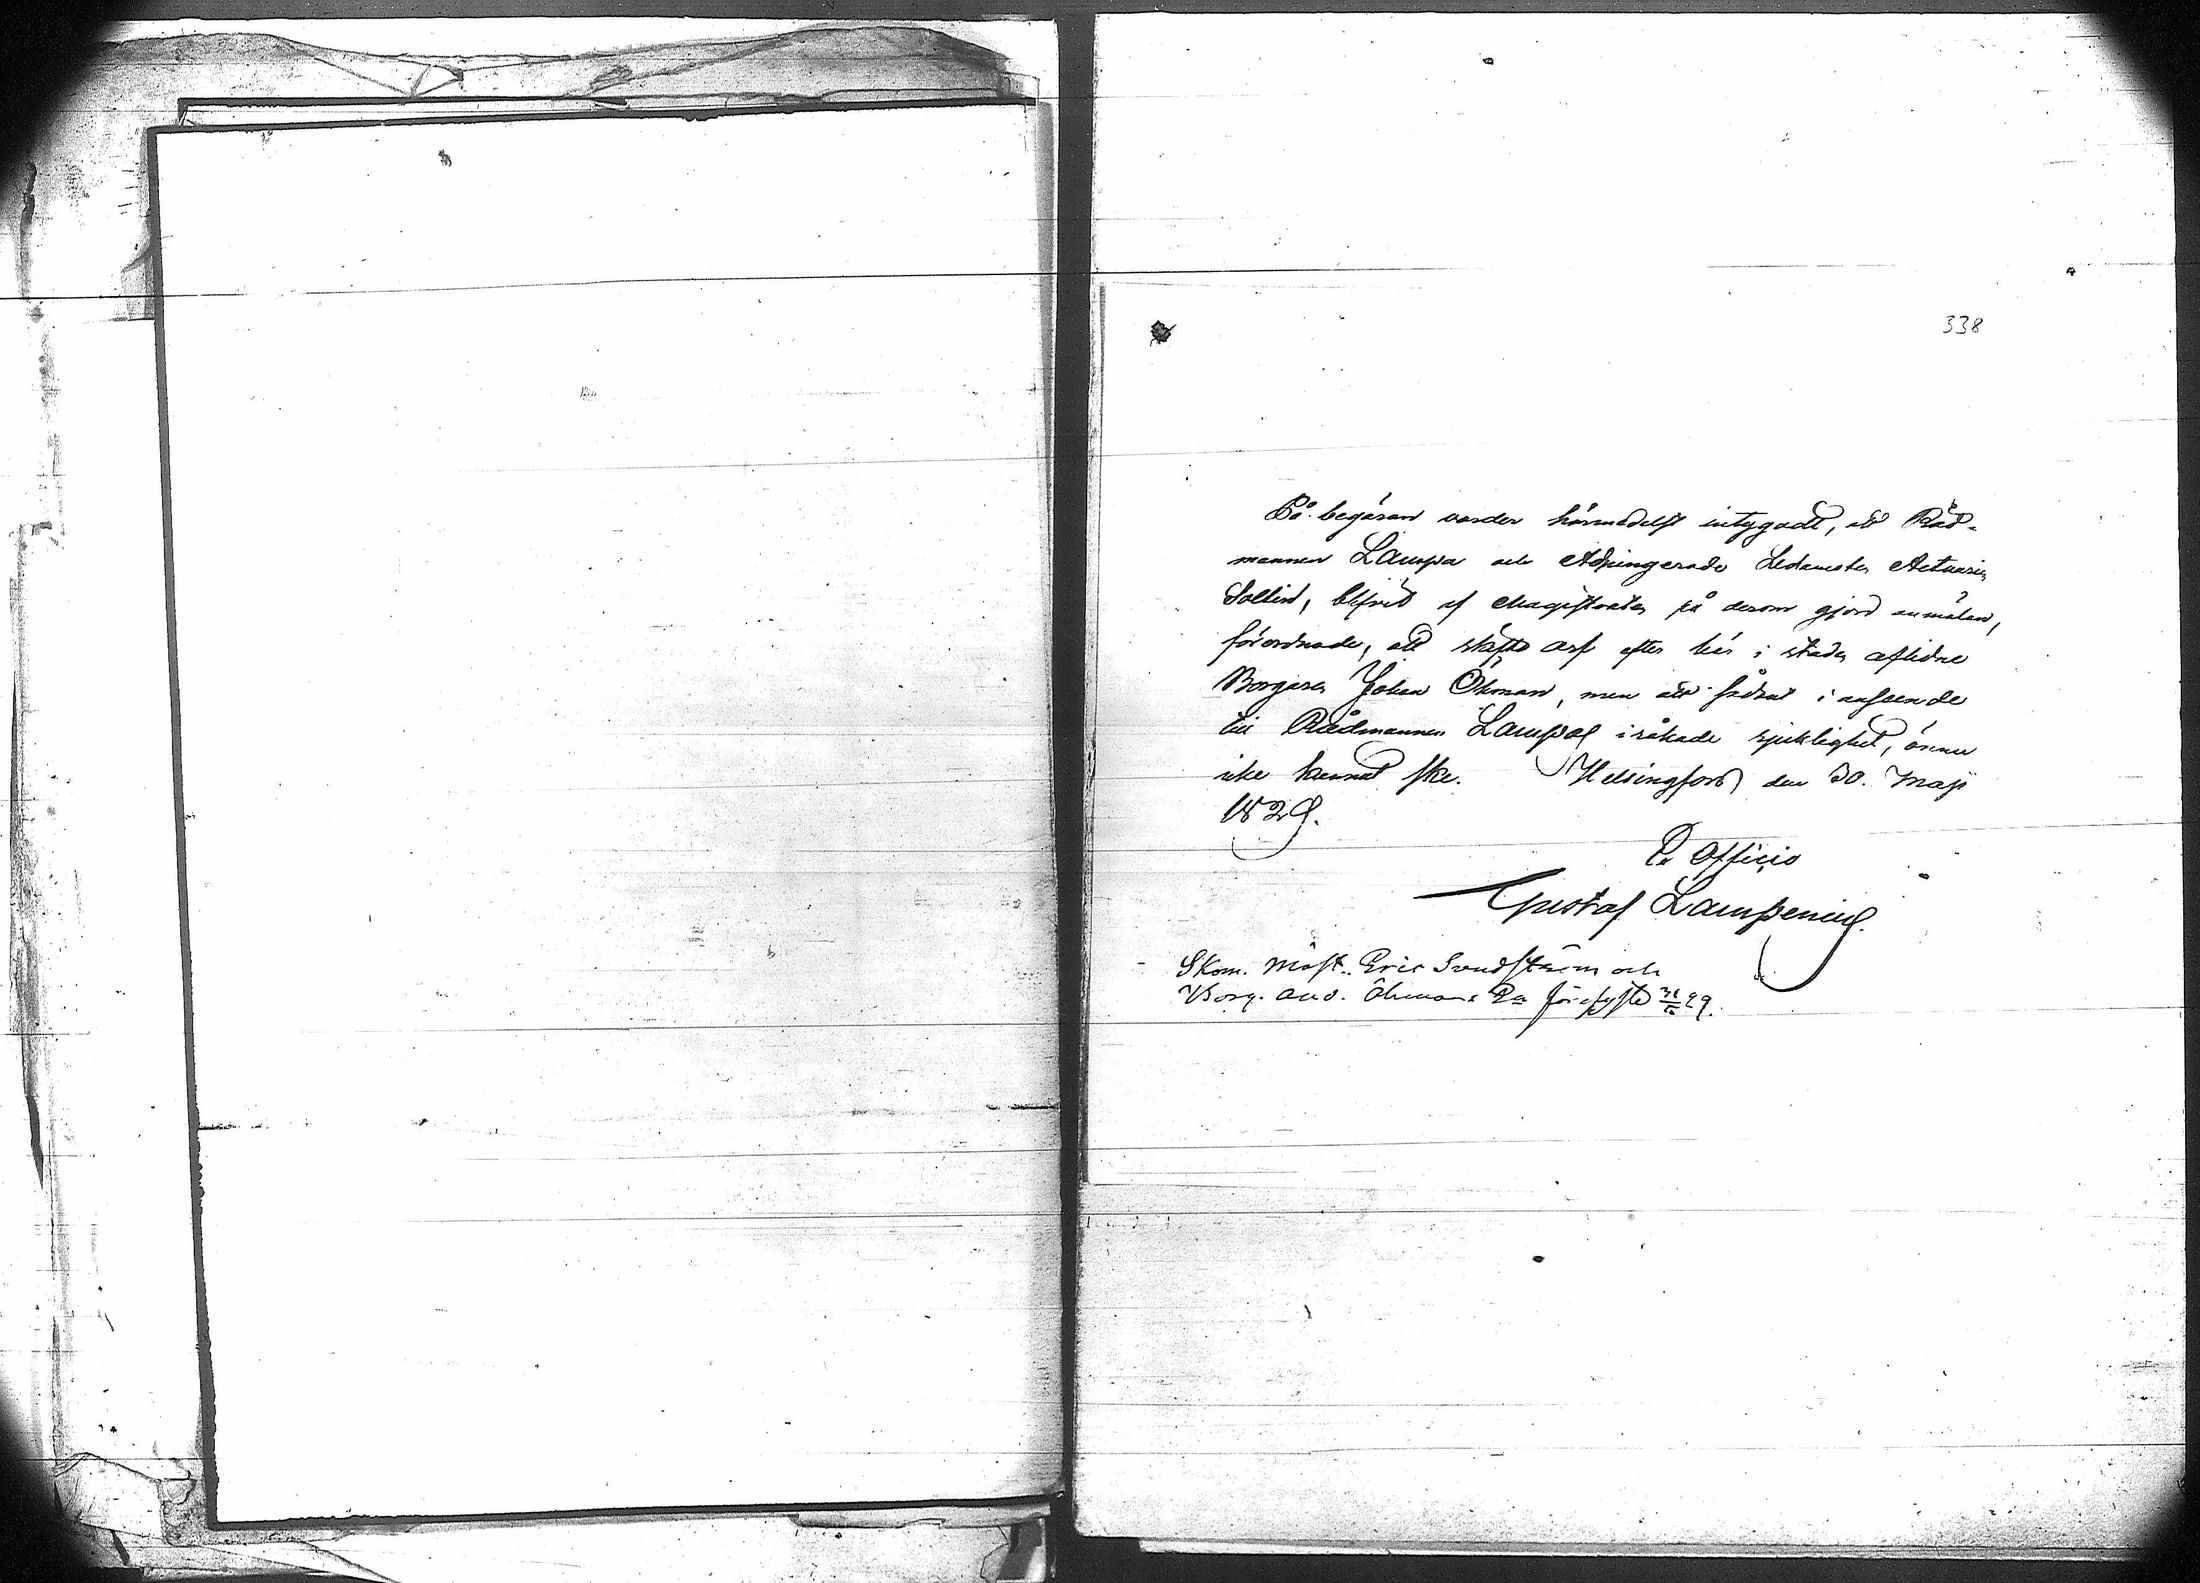 338
På begäran varder härmedelst intygadt, att Råd-
mannen Lampa och Adjungerade Ledamoten Actuarien
Sallin, blifvit af Magistraten på derom gjord anmälan,
förordnade, att skifta arf efter här i staden aflidne
Borgaren Johan Öhman, men att sådant i anseende
till Rådmannen Lampas iråkade sjuklighet, ännu
icke kunnat ske. Helsingfors den 30. Maji
1829.
Ex Officio
Gustaf Lampenius.
Skom. Mäst. Eric Sundström och
Borg. And. Öhman förefyste 29.